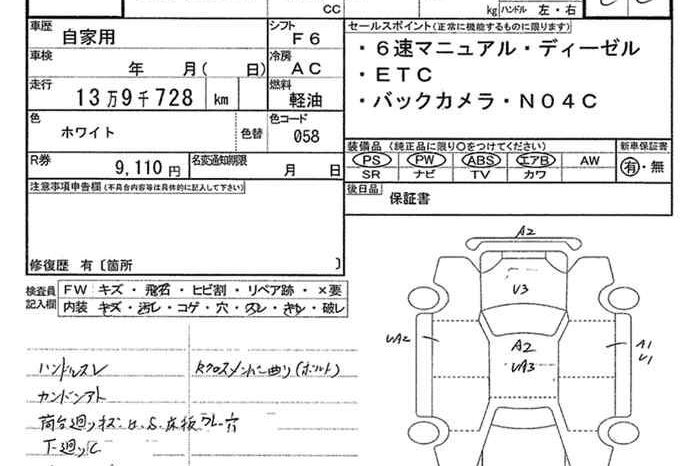 CC
kg ハンドル 左・右
車歴 自家用 シフト F6
車検 年 月( 日) 冷房 AC
走行 13万9千728 km 燃料 軽油
色 ホワイト 色替 色コード 058
R券 9,110円 名変通知期限 月 日
注意事項申告欄(不具合内容等は具体的に記入して下さい)
修復歴 有〔箇所 〕
セールスポイント(正常に機能するものに限ります)
・6速マニュアル・ディーゼル
・ETC
・バックカメラ・N04C
装備品(純正品に限り○をつけてください) 新車保証書
PS PW ABS エアB AW 有・無
SR ナビ TV カワ
後日品 保証書
検査員記入欄
FW キズ・飛石・ヒビ割・リペア跡・×要
内装 キズ・汚レ・コゲ・穴・スレ・キレ・破レ
ハンドルスレ
Rクロスメンバー曲り(ボルト)
カンドンアト
荷台廻りキズ
下廻りC
A2
V3
UA2
A2
UA3
A1
U1